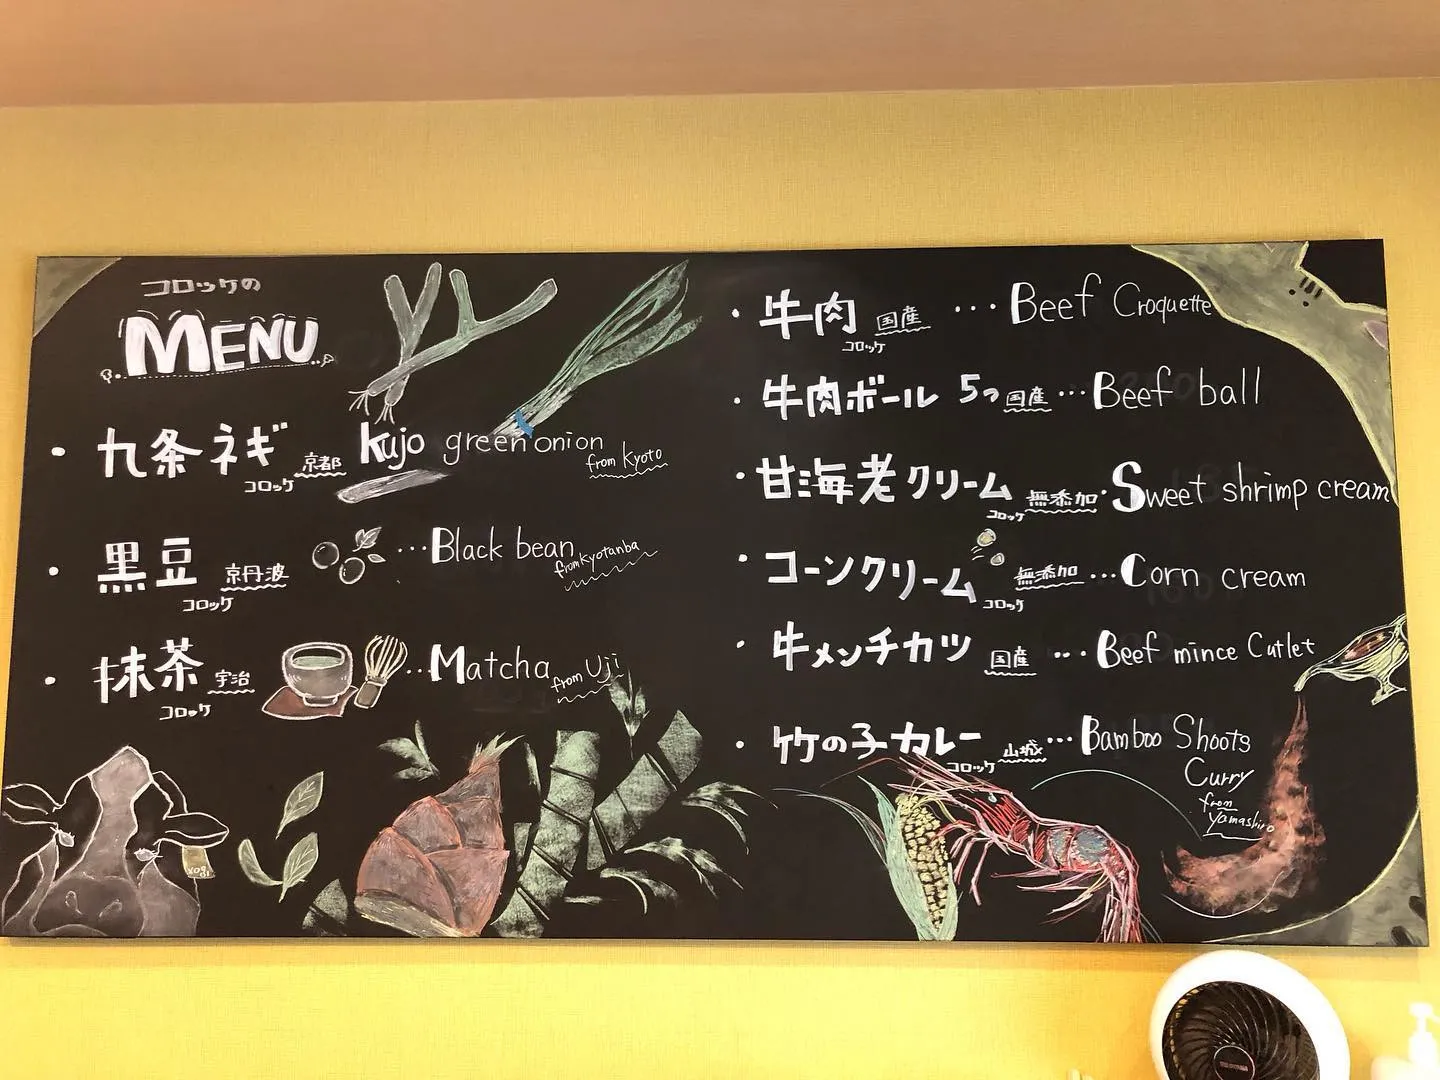 コロッケの
MENU
・九条ネギ 京都 コロッケ Kujo green onion from Kyoto
・黒豆 京丹波 コロッケ …Black bean from Kyotanba
・抹茶 宇治 コロッケ …Matcha from Uji
・牛肉 国産 コロッケ …Beef Croquette
・牛肉ボール 5つ 国産 …Beef ball
・甘海老クリーム 無添加 コロッケ ・Sweet shrimp cream
・コーンクリーム 無添加 コロッケ …Corn cream
・牛メンチカツ 国産 …Beef mince Cutlet
・竹の子カレー 山城 コロッケ …Bamboo Shoots
Curry
from
Yamashiro